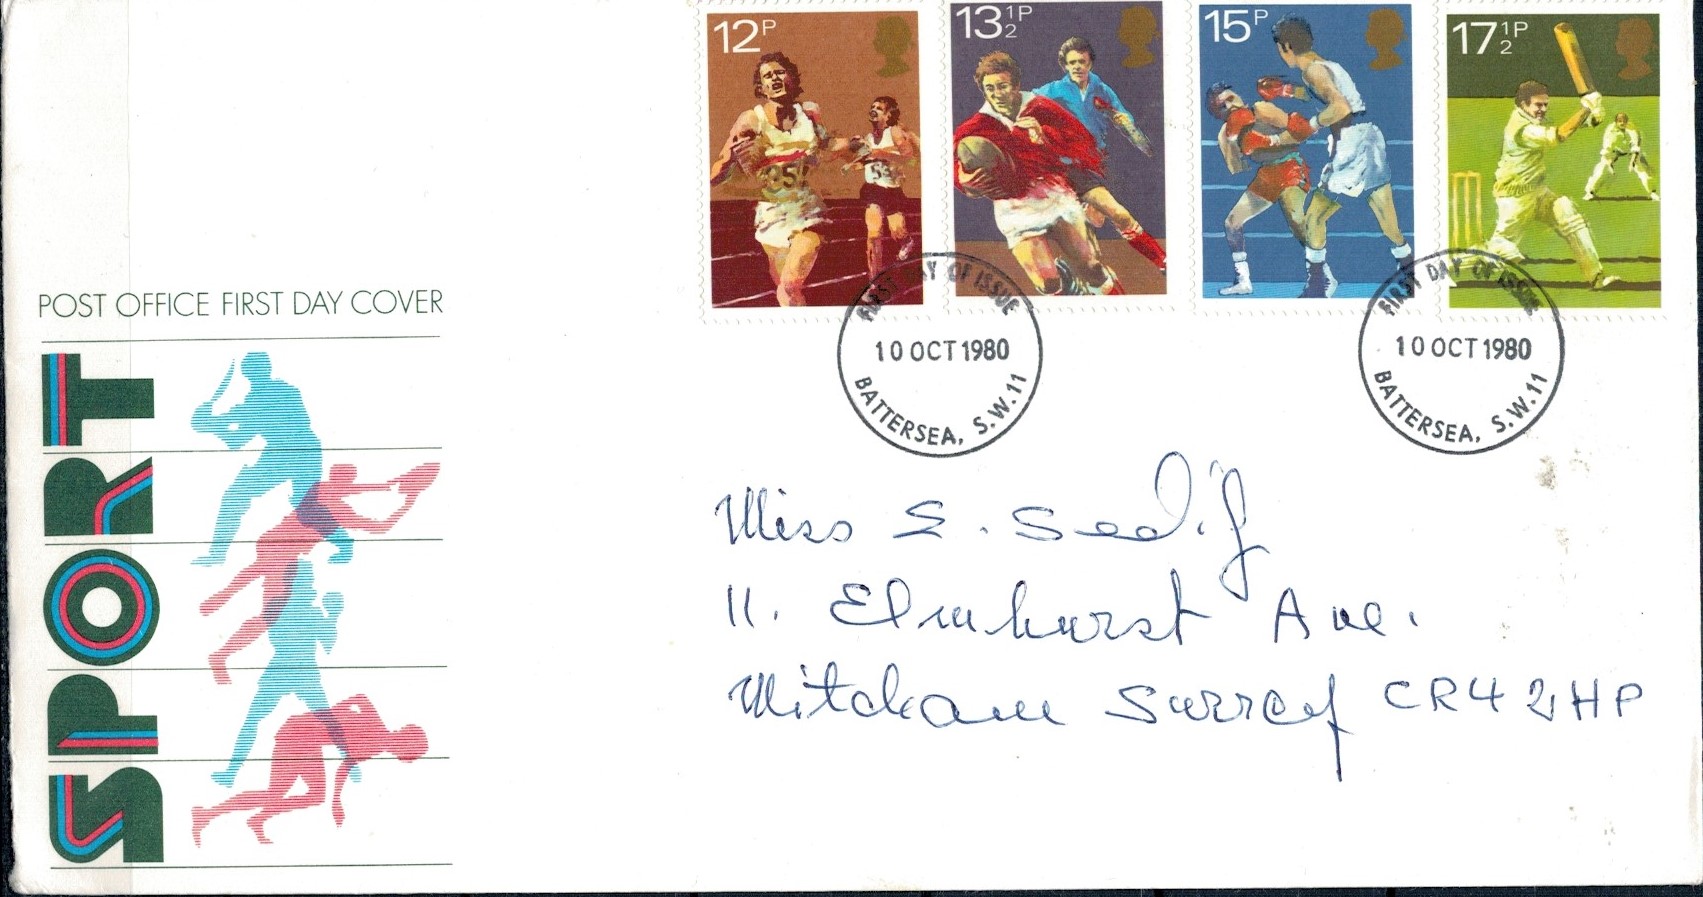 12P
13½P
15P
17½P
FIRST DAY OF ISSUE
10 OCT 1980
BATTERSEA, S.W.11
FIRST DAY OF ISSUE
10 OCT 1980
BATTERSEA, S.W.11
POST OFFICE FIRST DAY COVER
SPORT
Miss E.
11. Elmhurst Ave.
Mitcham Surrey CR4 2HP